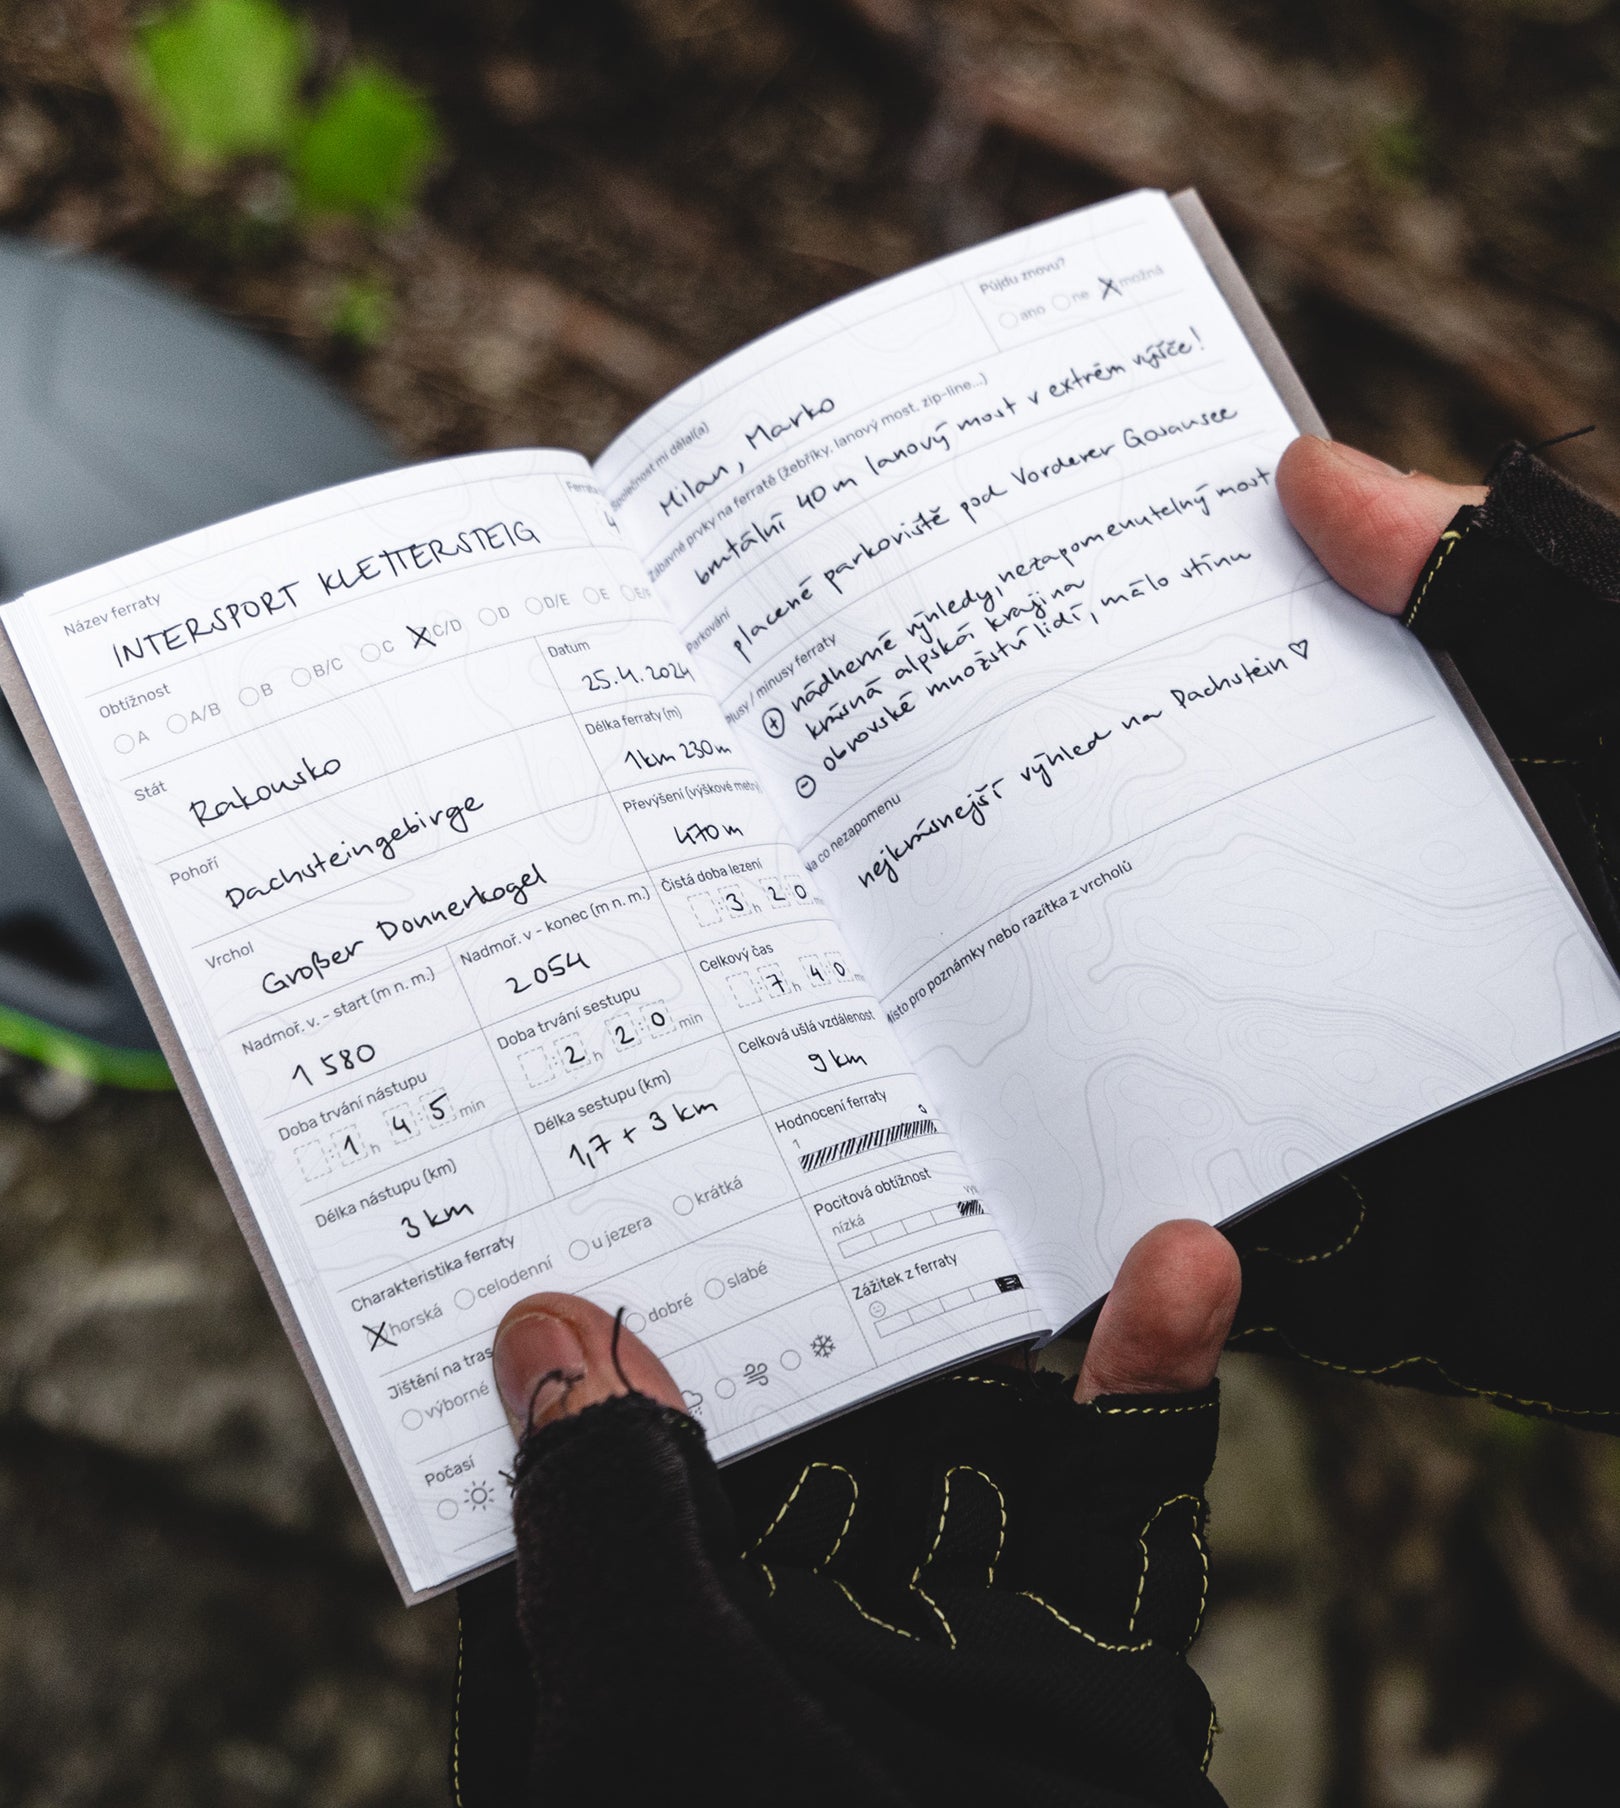 Název ferraty
Ferrata
INTERSPORT KLETTERSTEIG
4
Obtížnost
A A/B B B/C C C/D D D/E E
Stát
Rakousko
Datum
25.4.2024
Pohoří
Dachsteingebirge
Délka ferraty (m)
1km 230m
Vrchol
Großer Donnerkogel
Převýšení (výškové metry)
470m
Nadmoř. v. - start (m n. m.)
1 580
Nadmoř. v - konec (m n. m.)
2054
Čistá doba lezení
3 h 20 m
Doba trvání nástupu
1 h 45 min
Doba trvání sestupu
2 h 20 min
Celkový čas
7 h 40 m
Délka nástupu (km)
3 km
Délka sestupu (km)
1,7 + 3 km
Celková ušlá vzdálenost
9 km
Charakteristika ferraty
horská celodenní u jezera krátká
Hodnocení ferraty
1
Jištění na tras
výborné dobré slabé
Pocitová obtížnost
nízká
Počasí
Zážitek z ferraty
Společnost mi dělal(a)
Milan, Marko
Půjdu znovu?
ano ne možná
Zábavné prvky na ferratě (žebříky, lanový most, zip-line...)
brutální 40m lanový most v extrém výšce!
Parkování
placené parkoviště pod Vorderer Gosausee
plusy / mínusy ferraty
+ nádherné výhledy, nezapomenutelný most
krásná alpská krajina
- obrovské množství lidí, málo stínu
Na co nezapomenu
nejkrásnejší výhled na Dachstein ♡
Místo pro poznámky nebo razítka z vrcholů